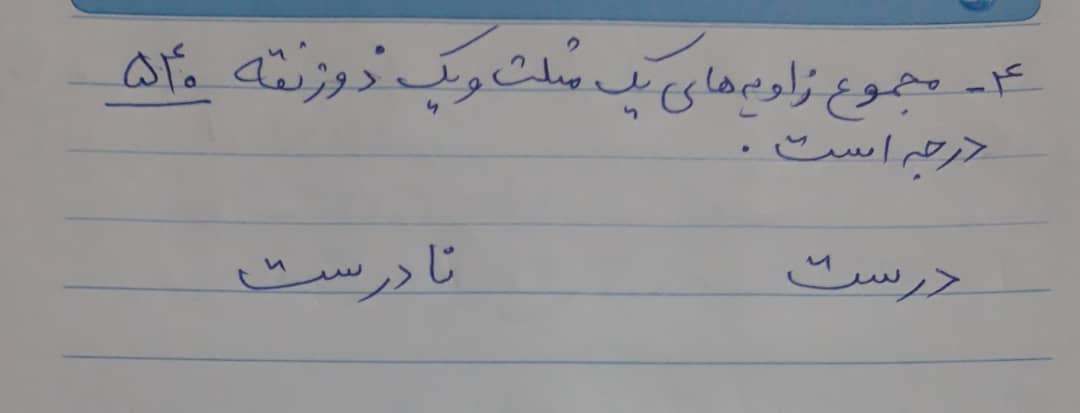 ۴- مجموع زاویه های یک مثلث و یک ذوزنقه ۵۴۰
درجه است .
درست نادرست